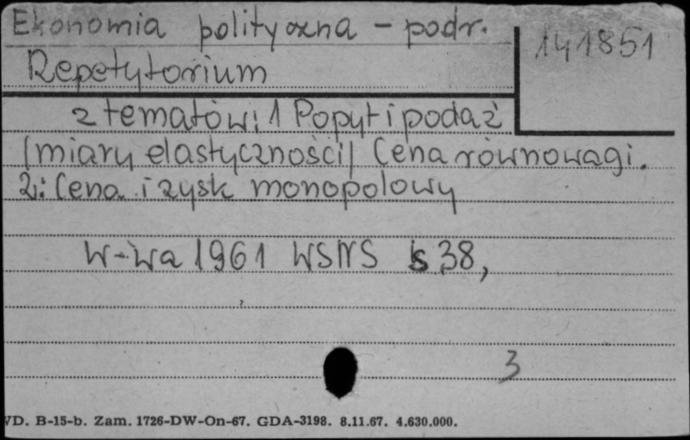 Ekonomia polityczna - podr.
141851
Repetytorium
z tematów: 1 Popyt i podaż
(miary elastyczności) Cena równowagi.
2: Cena i zysk monopolowy
W-wa 1961 WSNS s 38,
3
VD. B-15-b. Zam. 1726-DW-On-67. GDA-3198. 8.11.67. 4.630.000.